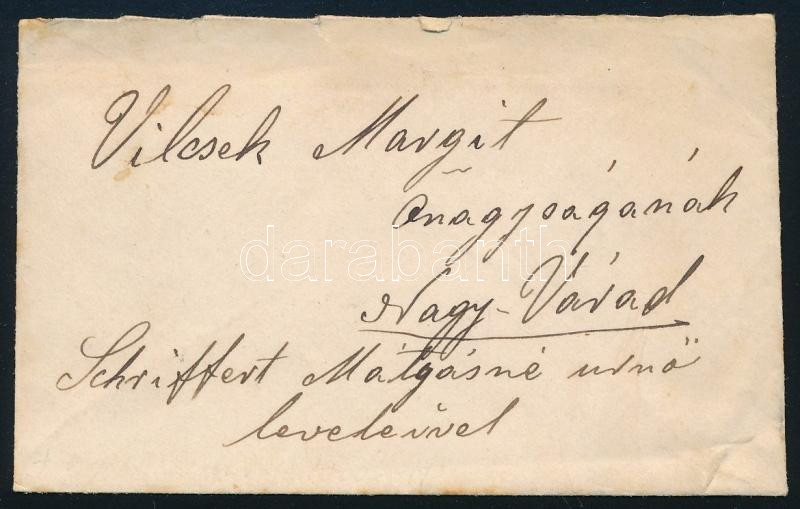 Vilcsek Margit
Őnagyságának
Nagy-Várad
Schriffert Mátyásné urnő
leveleivel
darabanth